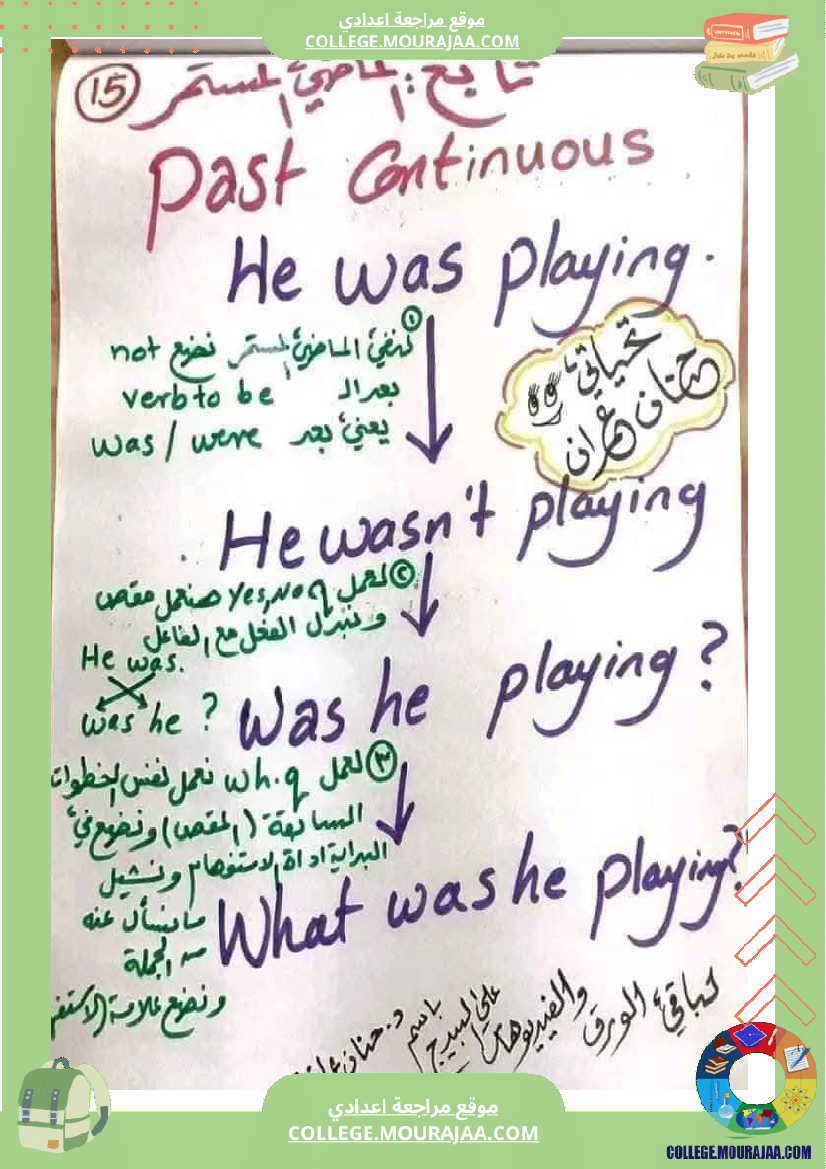 موقع مراجعة اعدادي
COLLEGE.MOURAJAA.COM
15 تابع: الماضي المستمر
Past Continuous
He was playing.
① لنفي الماضي المستمر نضع not
بعد الـ verb to be
يعني بعد was / were
تحياتي
حنان عمران
He wasn't playing
② لعمل Yes, No q هنعمل مقص
ونبدل الفعل مع الفاعل
He was.
was he ?
Was he playing ?
③ لعمل wh.q نعمل نفس الخطوات
السابقة (المقص) ونضع في
البداية اداة الاستفهام ونشيل
ما يسأل عنه
من الجملة
What was he playing?
ونضع علامة
باقي الورق
والفيديوهات
علي البيدج
باسم
د. حنان
موقع مراجعة اعدادي
COLLEGE.MOURAJAA.COM
COLLEGE.MOURAJAA.COM